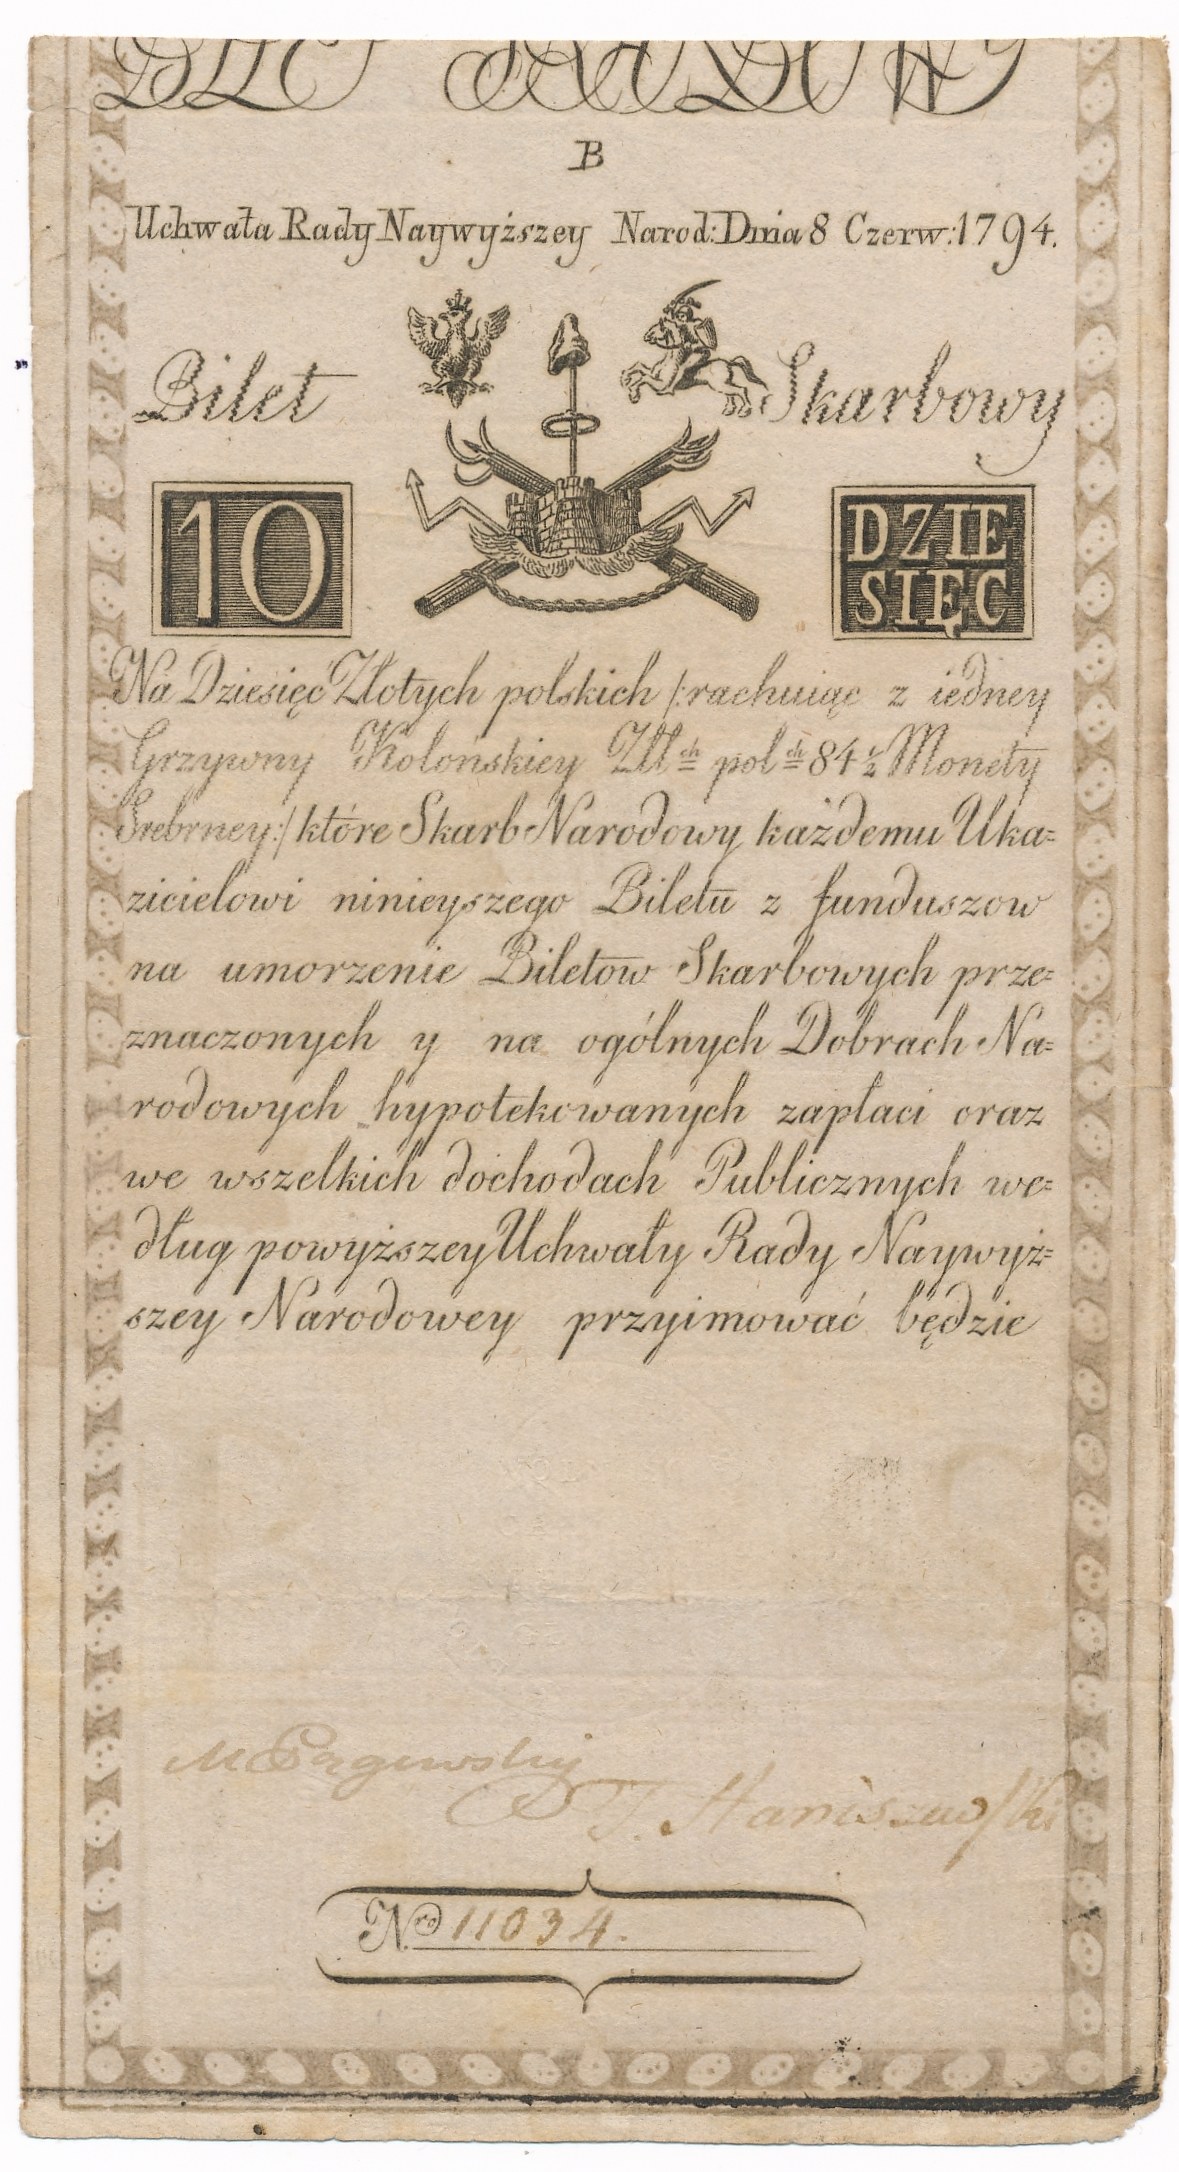 B
Uchwała Rady Naywyższey Narod: Dnia 8 Czerw: 1794.
Bilet Skarbowy
10
DZIE
SIĘC
Na Dziesięć Złotych polskich /: rachuiąc z iedney
Grzywny Kolońskiey Złł ch pol ch 84 1/2 Monety
Srebrney :/ które Skarb Narodowy każdemu Uka=
zicielowi ninieyszego Biletu z funduszow
na umorzenie Biletow Skarbowych prze=
znaczonych y na ogólnych Dobrach Na=
rodowych hypotekowanych zapłaci oraz
we wszelkich dochodach Publicznych we=
dług powyższey Uchwały Rady Naywyż=
szey Narodowey przyimować będzie
T. Staniszewski
Nro 11034.